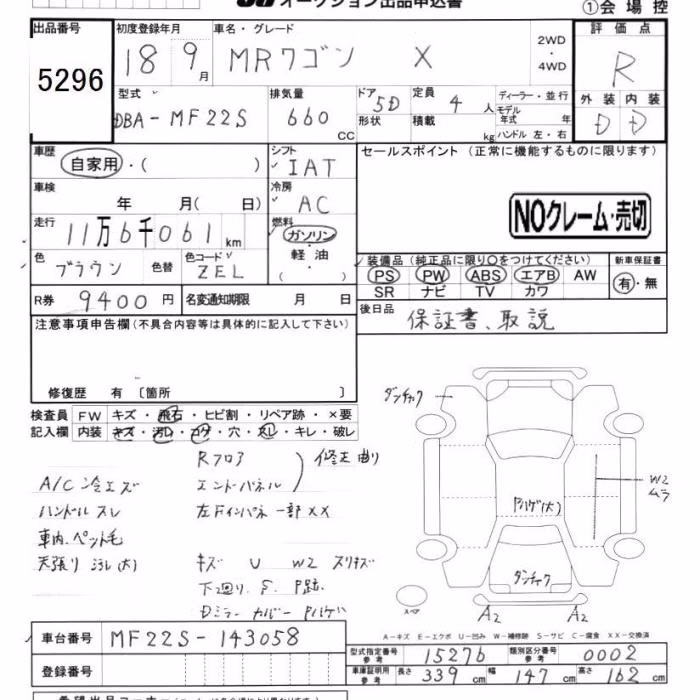 オークション出品申込書
①会場控
出品番号 初度登録年月 車名・グレード 2WD・4WD 評価点
5296 18 9月 MRワゴン X R
型式 排気量 ドア 定員 ディーラー・並行 外装 内装
DBA-MF22S 660cc 5D 4人 モデル年式 年 D D
形状 積載 kg ハンドル 左・右
車歴 シフト セールスポイント (正常に機能するものに限ります)
自家用・( ) IAT
車検 冷房
年 月( 日) AC
NOクレーム・売切
走行 燃料
11万6千061km ガソリン・軽油・( )
色 色替 色コード
ブラウン ZEL
装備品 (純正品に限り○をつけてください) 新車保証書
PS PW ABS エアB AW 有・無
SR ナビ TV カワ
R券 9400円 名変通知期限 月 日
後日品 保証書、取説
注意事項申告欄(不具合内容等は具体的に記入して下さい)
修復歴 有 〔箇所 〕
検査員 FW キズ・飛石・ヒビ割・リペア跡・×要
記入欄 内装 キズ・汚レ・コゲ・穴・スレ・キレ・破レ
Rフロア
エンドパネル 修正 曲り
A/C 冷エズ
ハンドル スレ 左Fインパネ 一部 XX
車内、ペット毛
天張り ヨゴレ(大) キズ U W2 スリキズ
下廻り、S、P跡、
Dミラー カバー Pハゲ
ダンチャク
W2
ムラ
Pハゲ(大)
ダンチャク
スペア
A2 A2
A-キズ E-エクボ U-凹み W-補修跡 S-サビ C-腐食 XX-交換済
車台番号 MF22S-143058
登録番号
型式指定番号 参考 15276 類別区分番号 参考 0002
車庫証明用 参考 長さ 339cm 幅 147cm 高さ 162cm